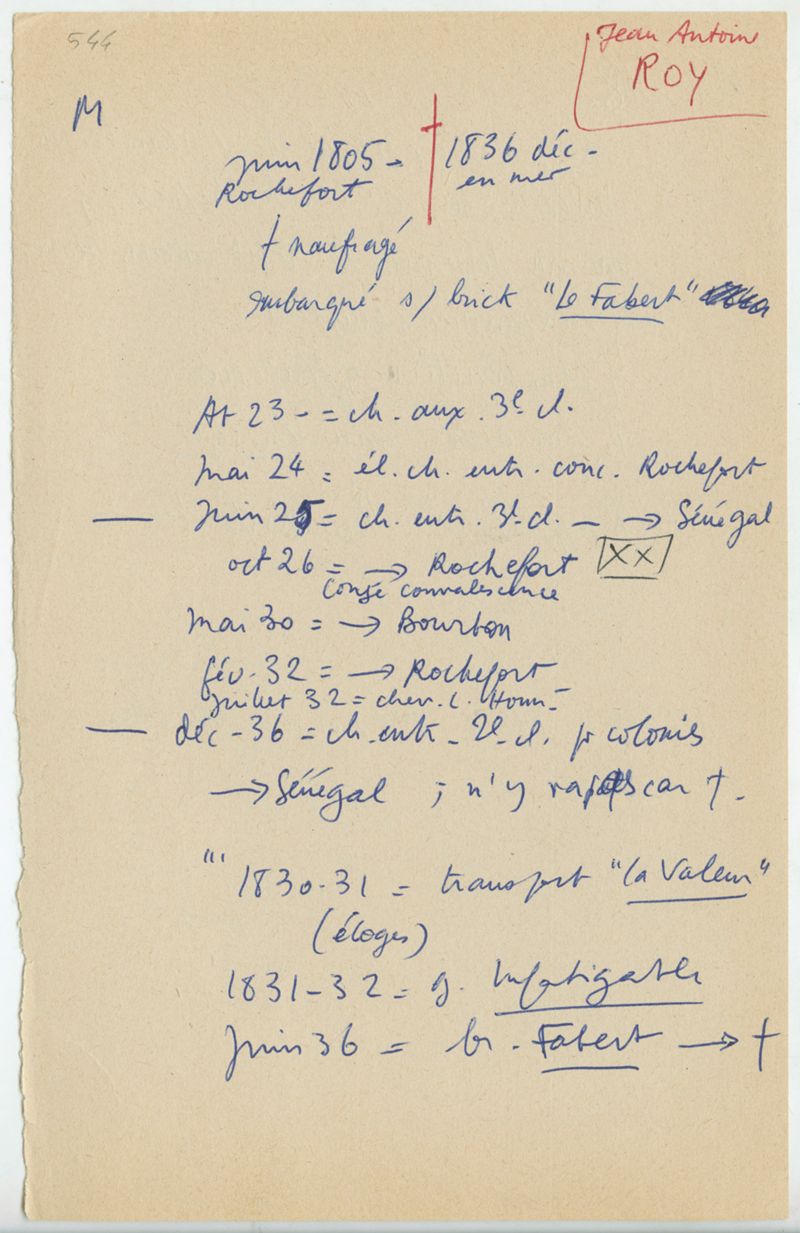 544
Jean Antoine
ROY
M
juin 1805 - † 1836 déc -
Rochefort en mer
† naufragé
embarqué s/ brick "Le Fabert"
At 23 - = ch. aux. 3e cl.
mai 24 = él. ch. entr. conc. Rochefort
— juin 25 = ch. entr. 3e cl. — → Sénégal
oct 26 = → Rochefort XX
Congé convalescence
mai 30 = → Bourbon
fév. 32 = → Rochefort
juillet 32 = chev. L. Honn.
— déc - 36 = ch. entr. 2e cl. pr colonies
→ Sénégal ; n'y car †.
"' 1830-31 = transport "La Valeur"
(éloges)
1831-32 = g. Infatigable
Juin 36 = br. Fabert → †